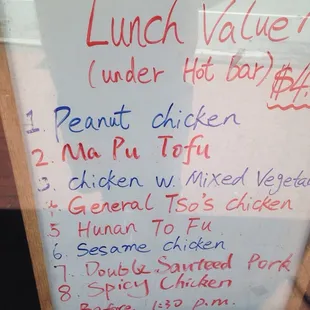 Lunch Value
(under Hot bar) $4.
1. Peanut chicken
2. Ma Pu Tofu
3. chicken w. Mixed Vegeta
4. General Tso's chicken
5 Hunan To Fu
6. Sesame chicken
7. Double Sauteed Pork
8. Spicy Chicken
Before 1:30 p.m.